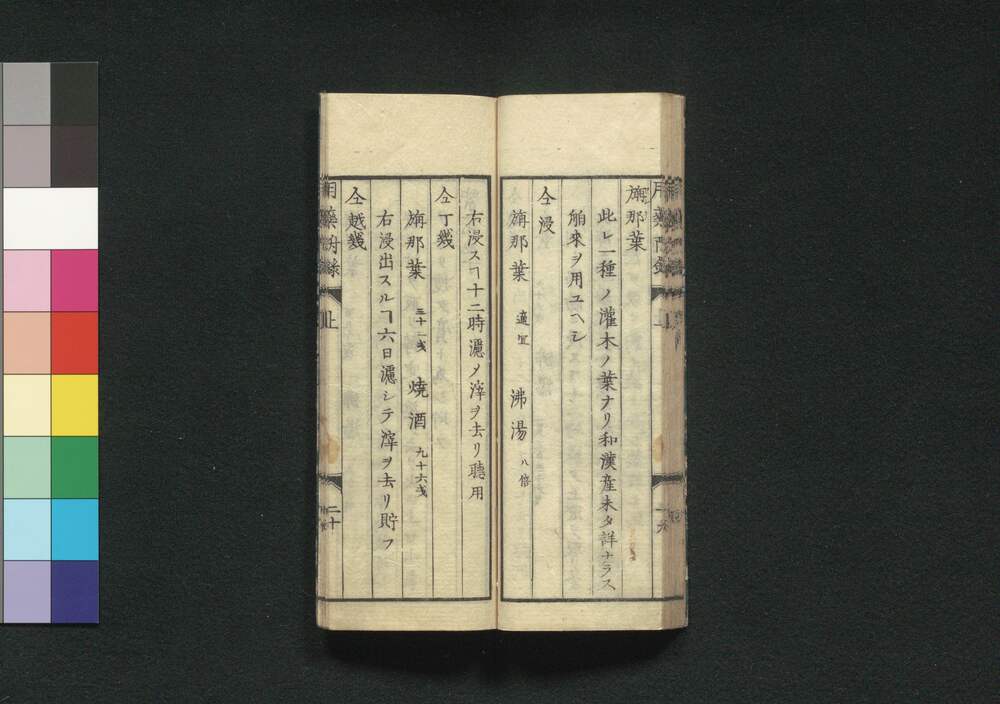 旃那葉
此レ一種ノ灌木ノ葉ナリ和漢産未タ詳ナラス
舶來ヲ用ユヘシ
仝浸
旃那葉 適宜 沸湯 八倍
右浸スヿ十二時濾メ滓ヲ去リ聴用
仝丁幾
旃那葉 三十二戔 焼酒 九十六戔
右浸出スルヿ六日濾シテ滓ヲ去リ貯フ
仝越幾
上
二十